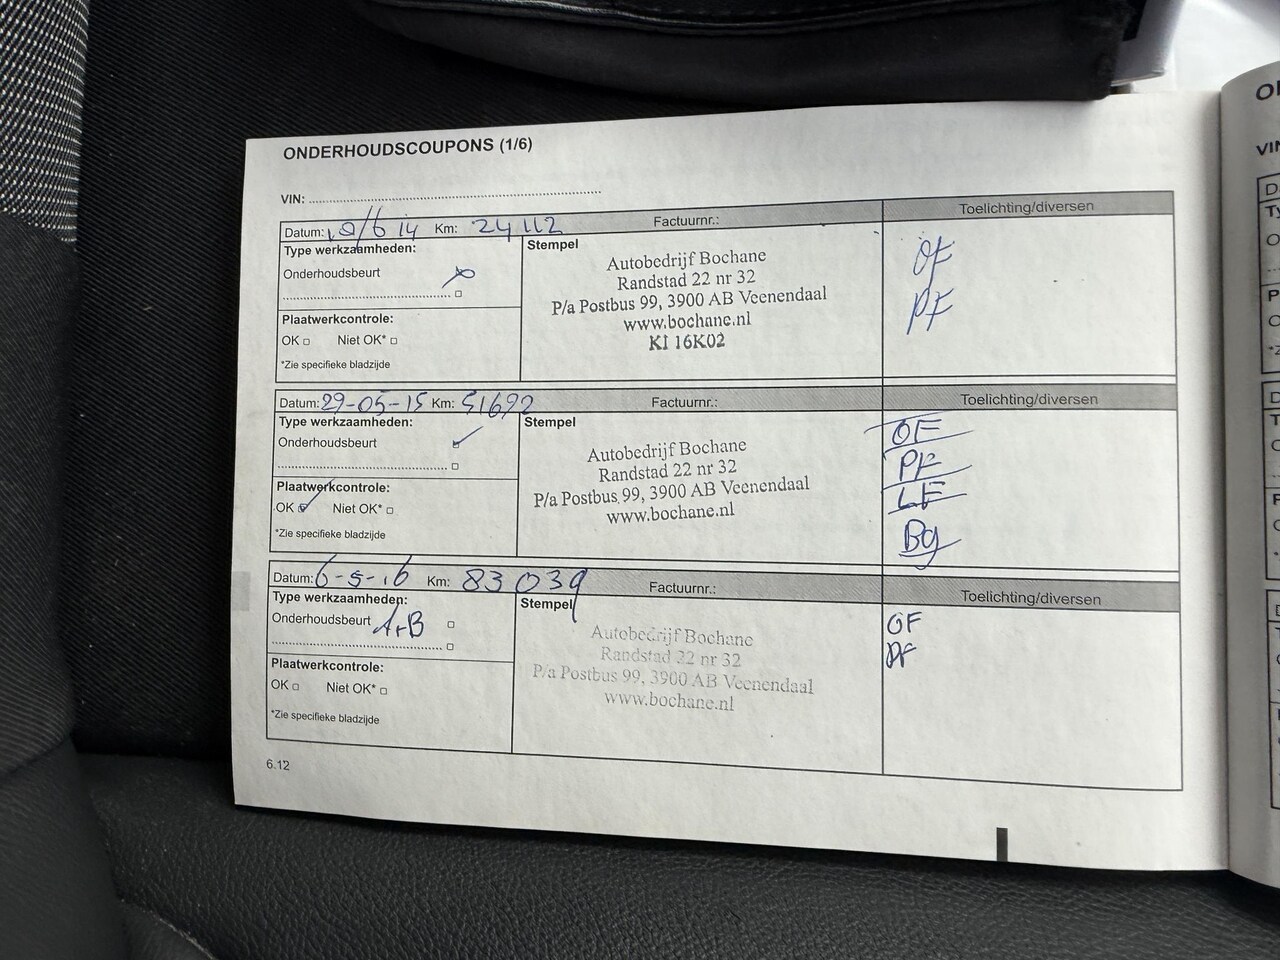 ONDERHOUDSCOUPONS (1/6)
VIN:
Datum: 19/6 14 Km: 24 112 Factuurnr.: Toelichting/diversen
Type werkzaamheden: Stempel
Onderhoudsbeurt
Autobedrijf Bochane
Randstad 22 nr 32
P/a Postbus 99, 3900 AB Veenendaal
www.bochane.nl
KI 16K02
OF
PF
Plaatwerkcontrole:
OK Niet OK*
*Zie specifieke bladzijde
Datum: 29-05-15 Km: 51692 Factuurnr.: Toelichting/diversen
Type werkzaamheden: Stempel
Onderhoudsbeurt
Autobedrijf Bochane
Randstad 22 nr 32
P/a Postbus 99, 3900 AB Veenendaal
www.bochane.nl
OF
PF
LF
Bg
Plaatwerkcontrole:
OK Niet OK*
*Zie specifieke bladzijde
Datum: 6-5-16 Km: 83 039 Factuurnr.: Toelichting/diversen
Type werkzaamheden: Stempel
Onderhoudsbeurt A+B
Autobedrijf Bochane
Randstad 22 nr 32
P/a Postbus 99, 3900 AB Veenendaal
www.bochane.nl
OF
PF
Plaatwerkcontrole:
OK Niet OK*
*Zie specifieke bladzijde
6.12